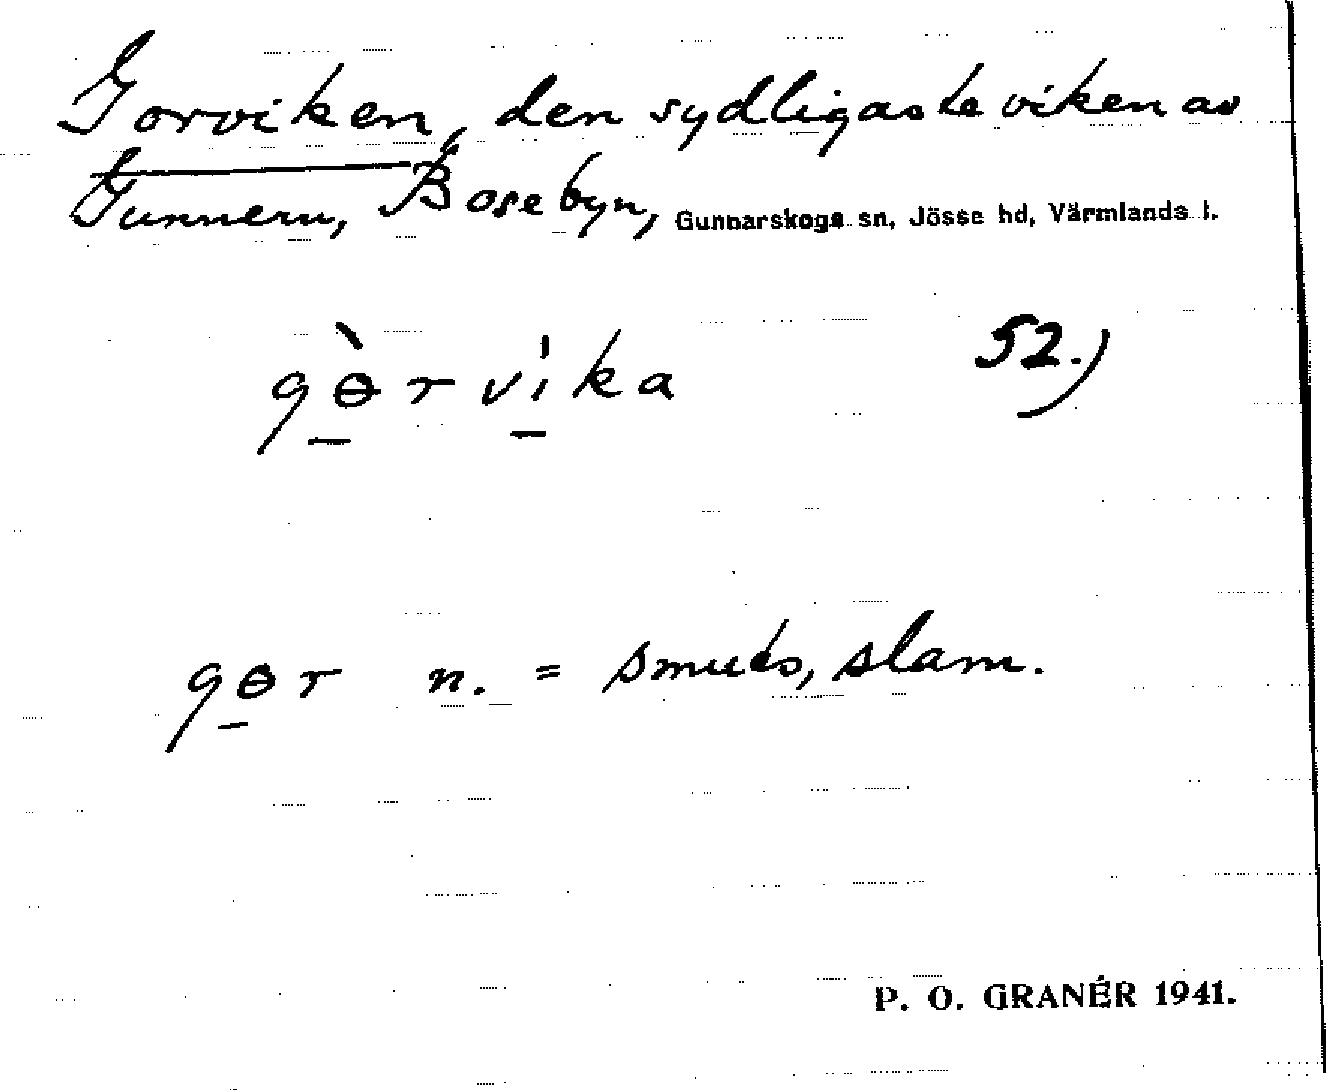 Gorviken, den sydligaste viken av
Gunnern, Bosebyn, Gunnarskogs sn, Jösse hd, Värmlands l.
gɵ̀rvi̍ka 52.)
gɵr n. = smuts, slam.
P. O. GRANÉR 1941.